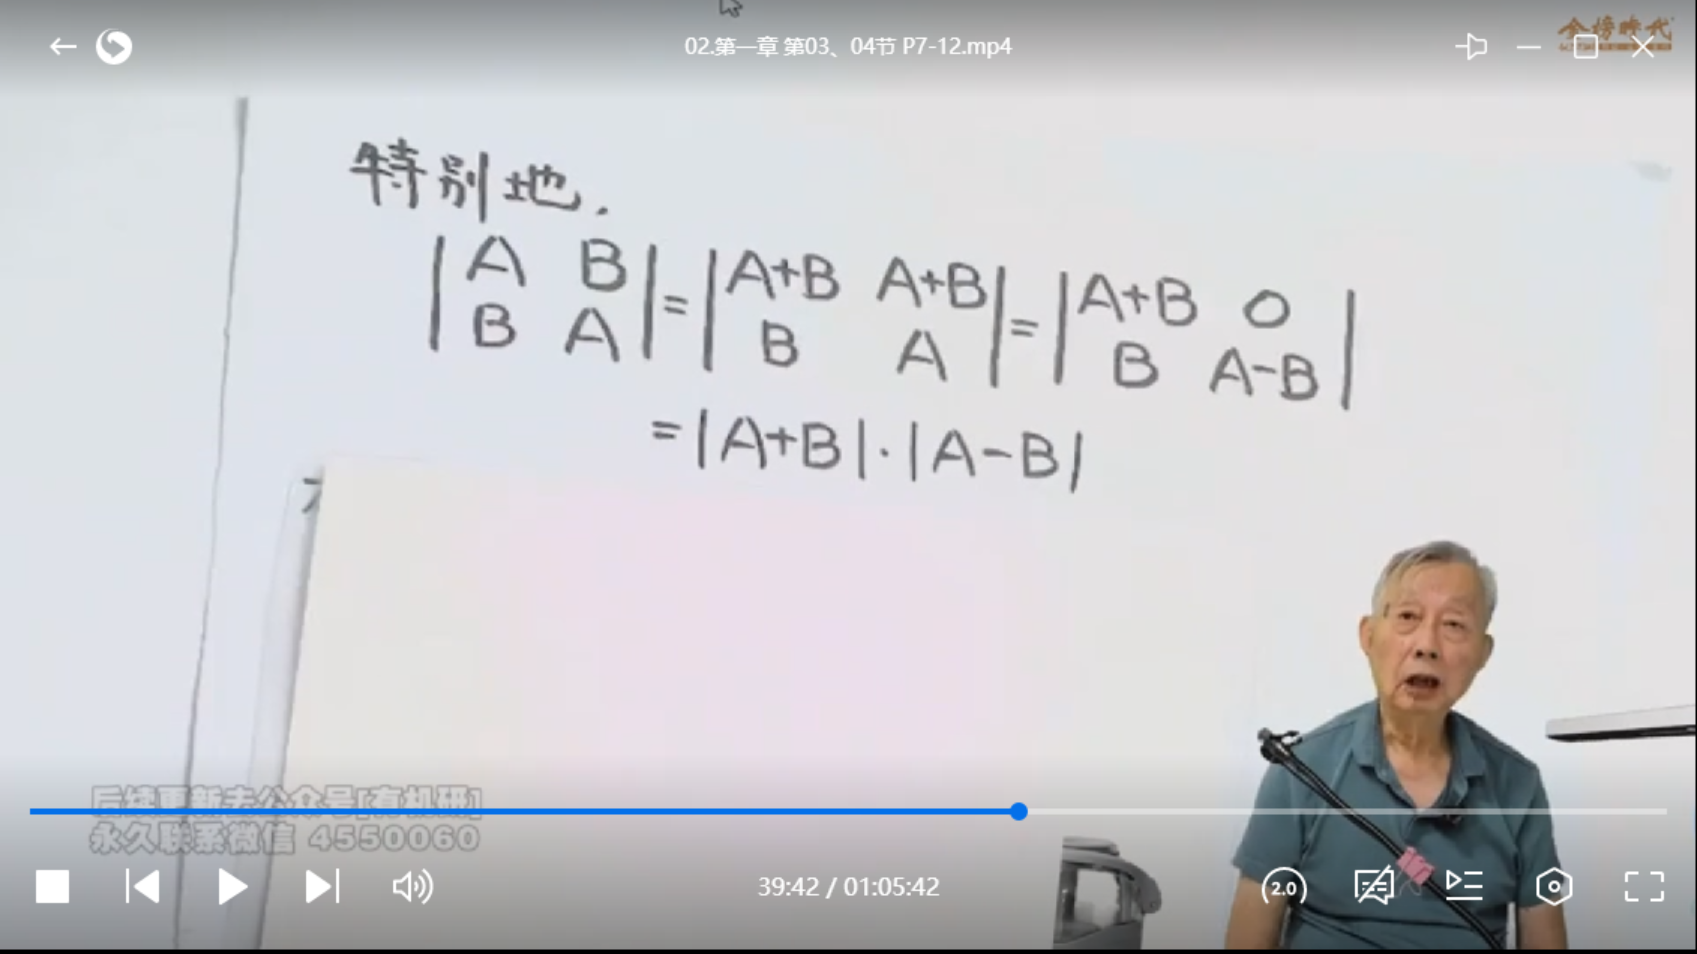 02.第一章 第03、04节 P7-12.mp4
金榜时代
特别地.
|A B| = |A+B A+B| = |A+B O|
|B A| |B A| |B A-B|
=|A+B|·|A-B|
后续更新去公众号[有机研]
永久联系微信 4550060
39:42 / 01:05:42
2.0